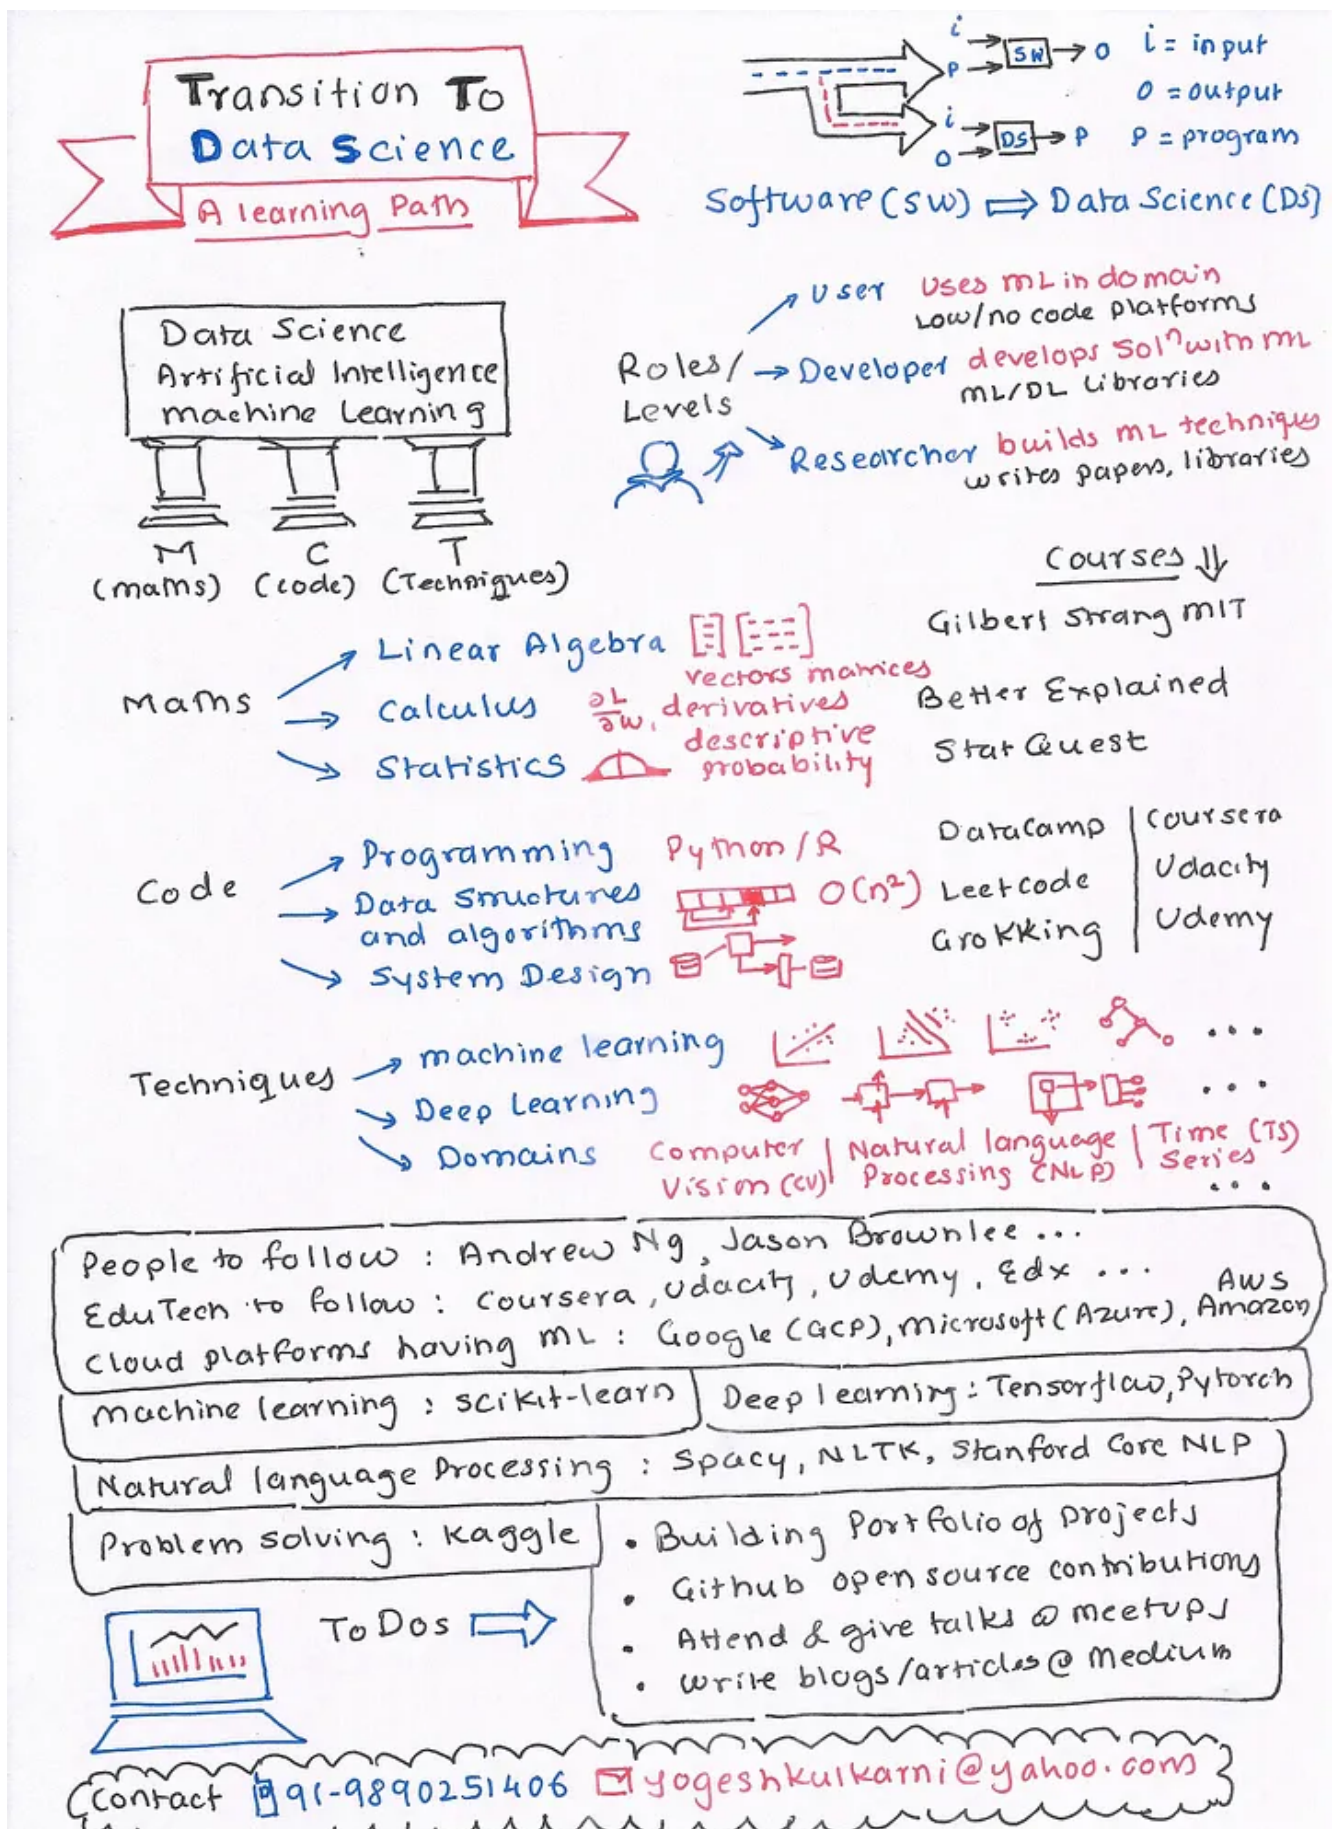 Transition To
Data Science
A learning Path
i
P
SW
O
i = input
O = output
P = program
i
O
DS
P
Software (SW) ⇒ Data Science (DS)
Data Science
Artificial Intelligence
machine Learning
M C T
(maths) (code) (Techniques)
Roles/
Levels
User uses ML in domain
Low/no code platforms
Developer develops Solⁿ with ML
ML/DL Libraries
Researcher builds ML technique
writes papers, libraries
Courses ⇓
Maths
Linear Algebra
vectors matrices
Calculus ∂L/∂w, derivatives
Statistics descriptive
probability
Gilbert Strang MIT
Better Explained
Stat Quest
Code
Programming Python / R
Data Structures
and algorithms
O(n²)
System Design
DataCamp
Leetcode
Grokking
Coursera
Udacity
Udemy
Techniques
machine learning ...
Deep Learning ...
Domains
Computer
Vision (CV)
Natural language
Processing (NLP)
Time (TS)
Series
...
People to follow : Andrew Ng, Jason Brownlee ...
EduTech to follow : Coursera, Udacity, Udemy, Edx ...
Cloud platforms having ML : Google (GCP), Microsoft (Azure), AWS
Amazon
Machine learning : scikit-learn
Deep learning : Tensorflow, Pytorch
Natural language Processing : Spacy, NLTK, Stanford Core NLP
Problem solving : Kaggle
ToDos
• Building Portfolio of projects
• Github open source contributions
• Attend & give talks @ meetups
• Write blogs/articles @ Medium
Contact 91-9890251406 yogeshkulkarni@yahoo.com